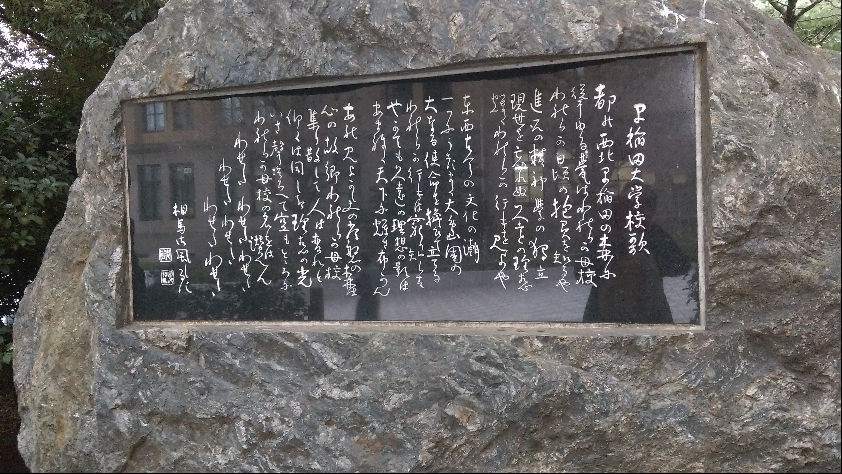 早稲田大学校歌
都の西北早稲田の森に
聳ゆる甍はわれらの母校
われらの日頃の抱負を知るや
進取の精神学の独立
現世を忘れぬ久遠の理想
輝くわれらの行手を見よや
东西古今の文化の潮
一つに渦巻く大島国の
大なる使命を擔ひて立てる
われらの行手は窮り知らず
やがても久遠の理想の影は
あまねく天下に輝き布かん
あれ見よかしこの常磐の森は
心の故郷われらの母校
集り散じて人は変れど
仰ぐは同じき理想の光
いざ声そろへて空もとどろに
われらの母校の名をば讃へん
わせだ わせだ
わせだ わせだ
わせだ わせだ わせだ
相馬御風